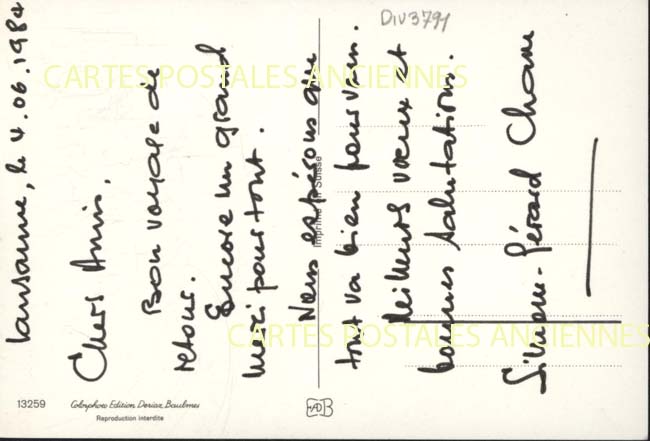 Lausanne, le 4.06.1984
Chers Amis,
Bon voyage de
retour.
Encore un grand
merci pour tout.
Nous espérons que
tout va bien pour vous.
Meilleurs vœux et
bonnes salutations.
Gérard
DIV3791
CARTES POSTALES ANCIENNES
CARTES POSTALES ANCIENNES
Imprimé en Suisse
13259 Colorphoto Edition Deriaz, Baulmes
Reproduction interdite